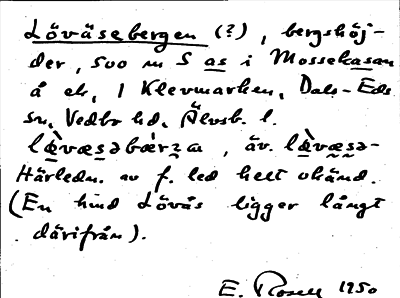 Löväsebergen (?), bergshöj-
der, 500 m S as i Mossekasan
å ek, 1 Klevmarken, Dals-Eds
sn, Vedbo hd, Älvsb. l.
lœ̀væsəbær̀ʒa, äv. lœ̀væsə-
Härledn. av f. led helt okänd.
(En hind Lövås ligger långt
därifrån).
E. Rosell 1950